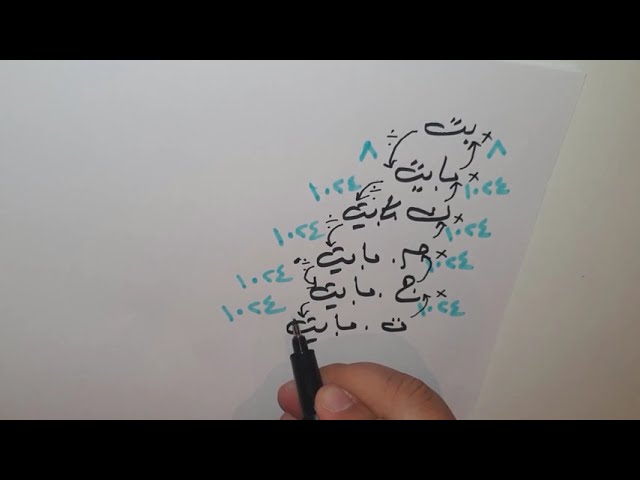 ÷ بت ×
٨ ٨
بايت ×
١٠٢٤ ÷ ١٠٢٤
ك بايت ×
١٠٢٤ ÷ ١٠٢٤
م. بايت ×
١٠٢٤ ÷ ١٠٢٤
ج. بايت ×
١٠٢٤ ١٠٢٤
ت. بايت